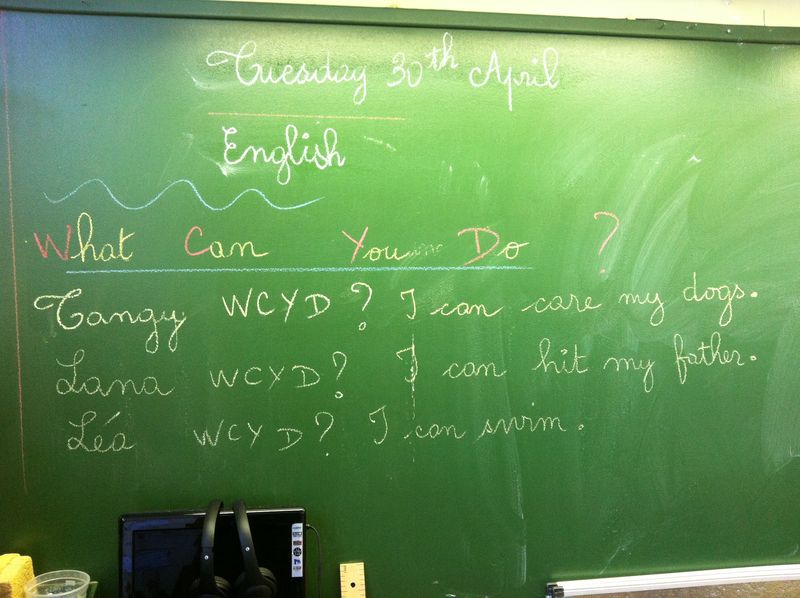 Tuesday 30th April
English
What Can You Do ?
Tangy WCYD ? I can care my dogs.
Lana WCYD ? I can hit my father.
Léa WCYD ? I can swim.